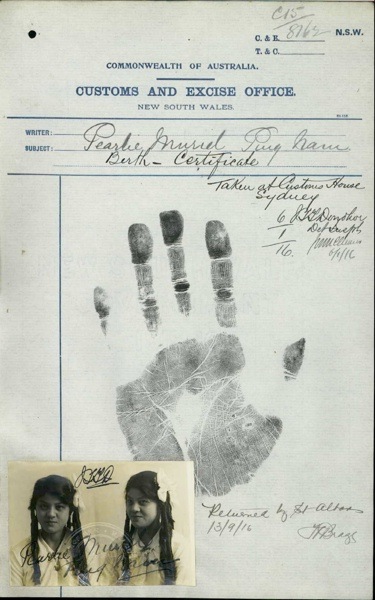 C15
C. & E. 87/62 N.S.W.
T. & C.
COMMONWEALTH OF AUSTRALIA.
CUSTOMS AND EXCISE OFFICE.
NEW SOUTH WALES.
WRITER: Pearlie Muriel Ping Nam
SUBJECT: Birth - Certificate
Taken at Customs House
Sydney
6 J.T.T. Donohoe
1 Det Inspr
16.
6/1/16
J.T.T.D
Pearlie Muriel
Ping Nam
Returned by St Albans
13/9/16